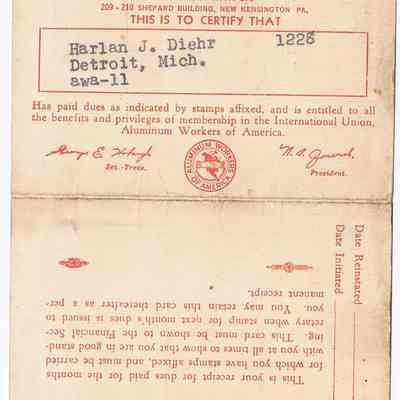 209-210 SHEPARD BUILDING, NEW KENSINGTON PA.
THIS IS TO CERTIFY THAT
Harlan J. Diehr 1226
Detroit, Mich.
awa-11
Has paid dues as indicated by stamps affixed, and is entitled to all
the benefits and privileges of membership in the International Union,
Aluminum Workers of America.
George E.
N. A.
Sec.-Treas.
President.
ALUMINUM WORKERS
OF AMERICA
Date Reinstated
Date Initiated
This is your receipt for dues paid for the months
for which you have stamps affixed, and must be carried
with you at all times to show that you are in good stand-
ing. This card must be shown to the Financial Sec-
retary when stamp for next month's dues is issued to
you. You may retain this card thereafter as a per-
manent receipt.